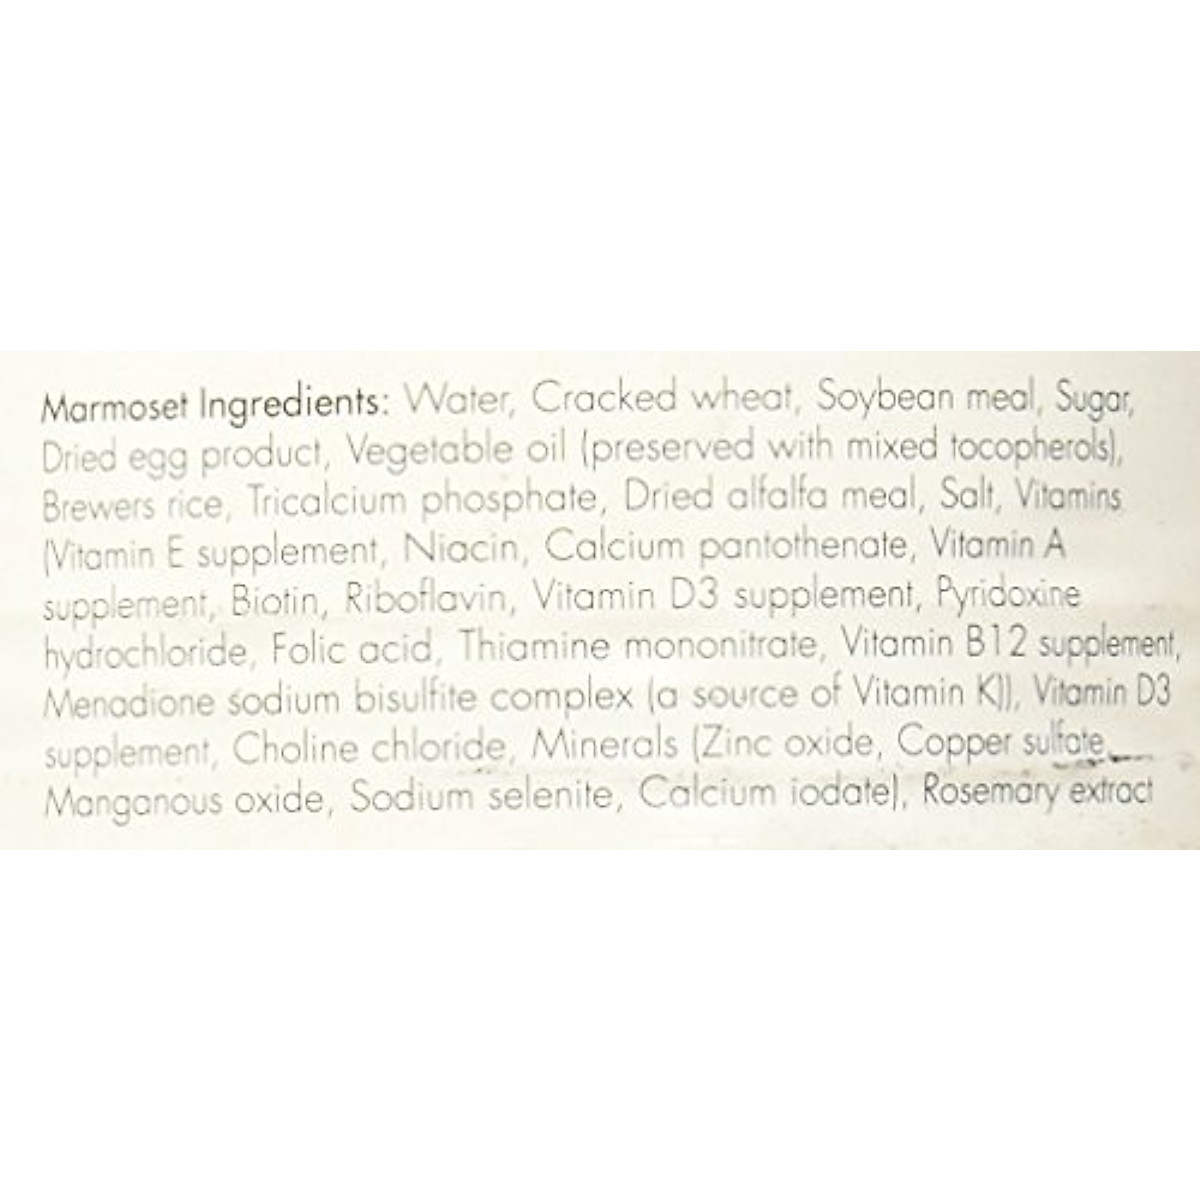 Marmoset Ingredients: Water, Cracked wheat, Soybean meal, Sugar,
Dried egg product, Vegetable oil (preserved with mixed tocopherols),
Brewers rice, Tricalcium phosphate, Dried alfalfa meal, Salt, Vitamins
(Vitamin E supplement, Niacin, Calcium pantothenate, Vitamin A
supplement, Biotin, Riboflavin, Vitamin D3 supplement, Pyridoxine
hydrochloride, Folic acid, Thiamine mononitrate, Vitamin B12 supplement,
Menadione sodium bisulfite complex (a source of Vitamin K)), Vitamin D3
supplement, Choline chloride, Minerals (Zinc oxide, Copper sulfate,
Manganous oxide, Sodium selenite, Calcium iodate), Rosemary extract